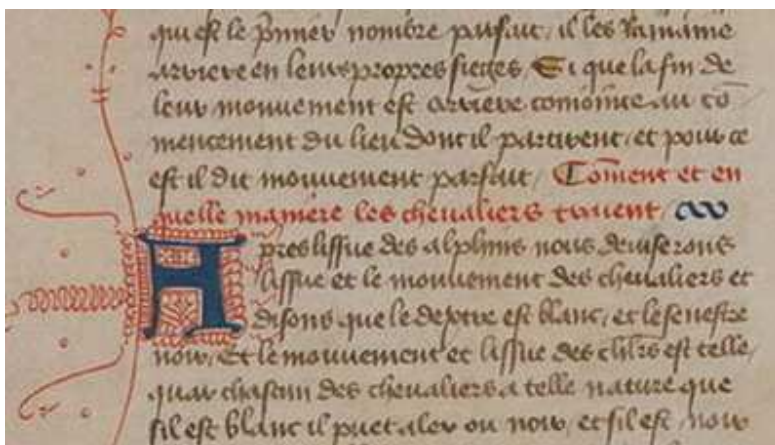 qui est le p̄mier nombre parfait, il les ramaine
arriere en leurs propres sieges, Si que la fin de
leur mouvement est arriere comoince au cō
mencement du lieu dont il partirent, et pour ce
est il dit mouvement parfait, Cōment et en
quelle maniere les chevaliers traient,
Apres lissue des alphins nous deviserons
lissue et le mouvement des chevaliers et
disons que le deptre est blanc, et le senestre
noir, Et le mouvement et lissue des chl̄rs est telle,
quar chascun des chevaliers a telle nature que
sil est blanc il puet aler ou noir, et sil est noir